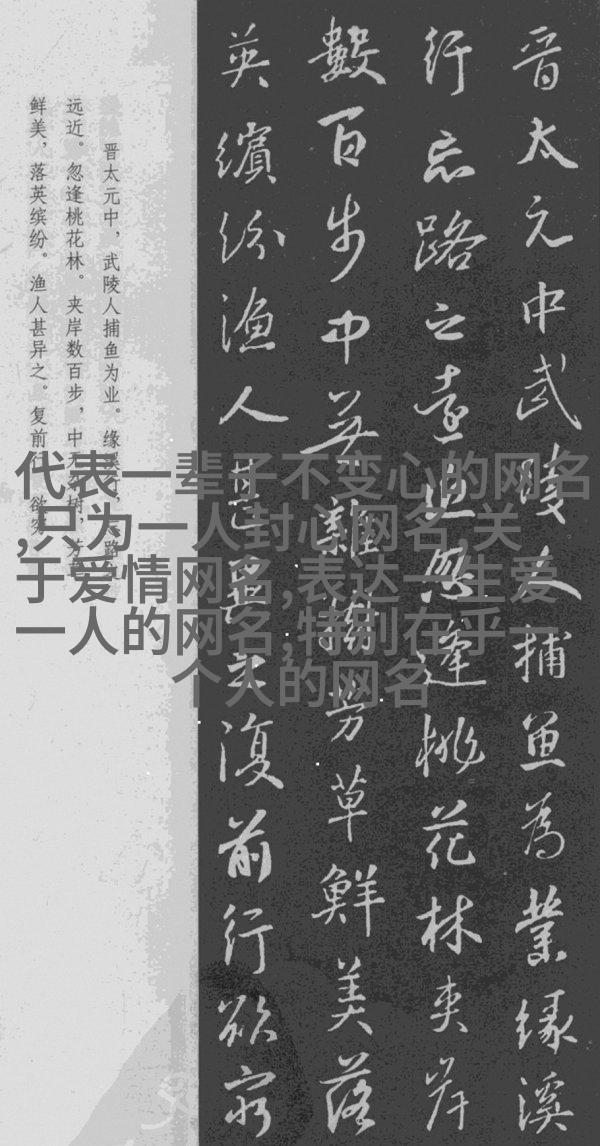 晋太元中武陵人捕鱼为業缘溪
行忘路之遠近忽逢桃花林夹岸
數百步中無雜樹芳草鮮美落
英缤纷漁人甚異之復前行欲窮
晋太元中，武陵人捕鱼为业。缘溪行，忘路之
远近。忽逢桃花林。夹岸数百步，中无杂树，芳草
鲜美，落英缤纷。渔人甚异之。复前行，欲穷
代表一辈子不变心的网名
,只为一人封心网名,关
于爱情网名,表达一生爱
一人的网名,特别在乎一
个人的网名